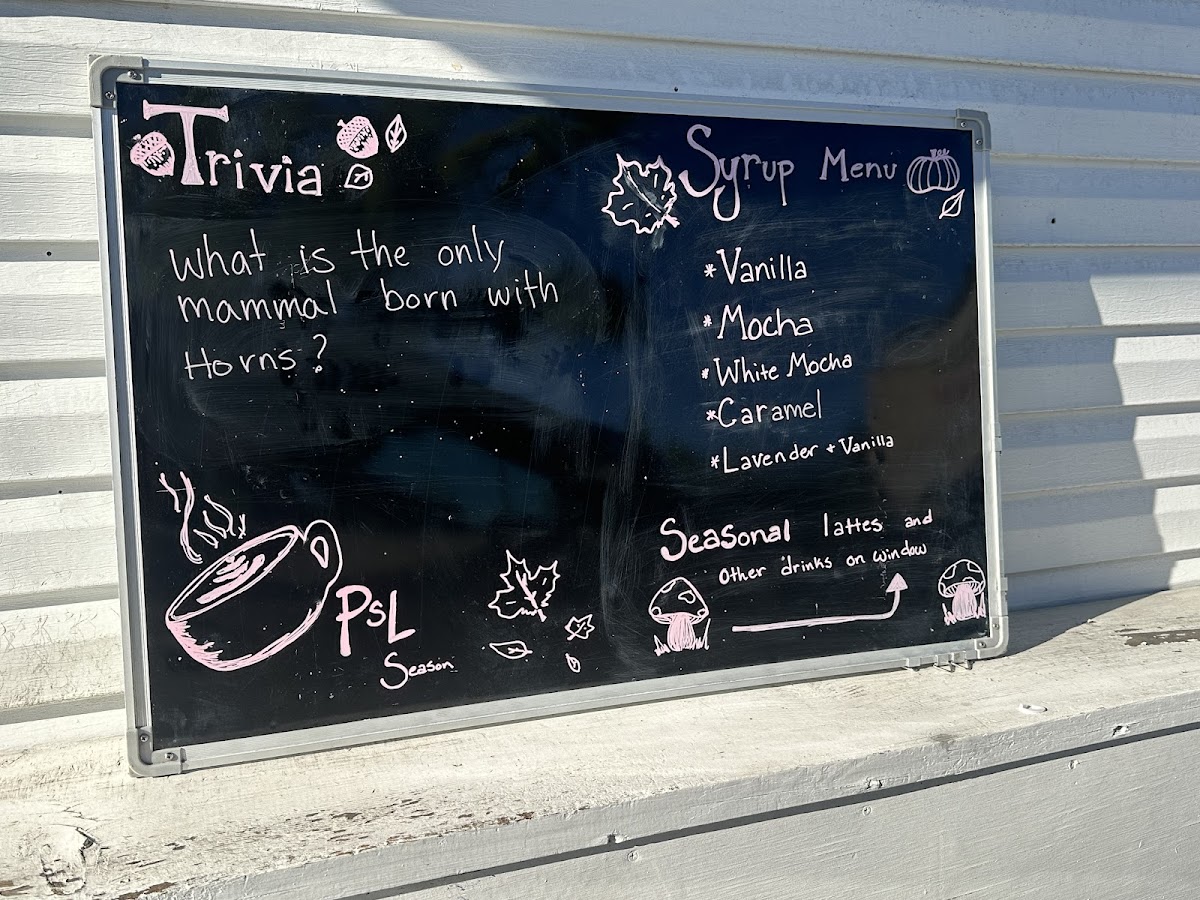 Trivia
What is the only
mammal born with
Horns?
PSL
Season
Syrup Menu
*Vanilla
*Mocha
*White Mocha
*Caramel
*Lavender + Vanilla
Seasonal lattes and
other drinks on window